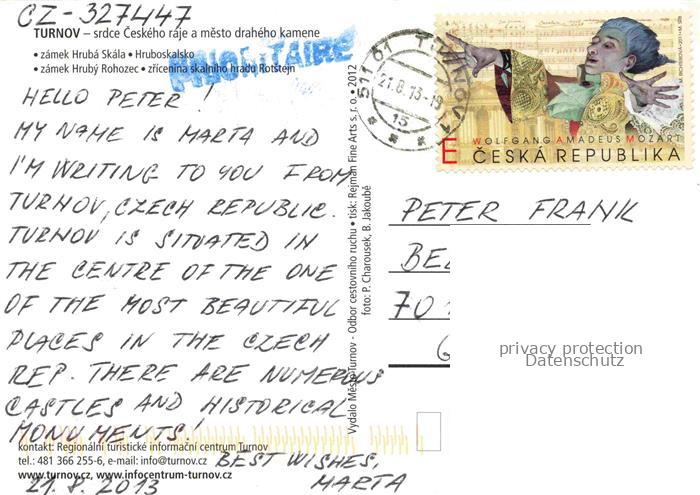 CZ-327447
TURNOV – srdce Českého ráje a město drahého kamene
• zámek Hrubá Skála • Hruboskalsko
• zámek Hrubý Rohozec • zřícenina skalního hradu Rotštejn
PRIORITAIRE
HELLO PETER!
MY NAME IS MARTA AND
I'M WRITING TO YOU FROM
TURNOV, CZECH REPUBLIC.
TURNOV IS SITUATED IN
THE CENTRE OF THE ONE
OF THE MOST BEAUTIFUL
PLACES IN THE CZECH
REP. THERE ARE NUMEROUS
CASTLES AND HISTORICAL
MONUMENTS!
BEST WISHES,
MARTA
21.8.2013
kontakt: Regionální turistické informační centrum Turnov
tel.: 481 366 255-6, e-mail: info@turnov.cz
www.turnov.cz, www.infocentrum-turnov.cz
Vydalo Město Turnov - Odbor cestovního ruchu • tisk: Rejman Fine Arts s. r. o. • 2012
foto: P. Charousek, B. Jakoubě
511 01 TURNOV 1
21.8.13-19
15
WOLFGANG AMADEUS MOZART
E ČESKÁ REPUBLIKA
PETER FRANK
BE
70
privacy protection
Datenschutz